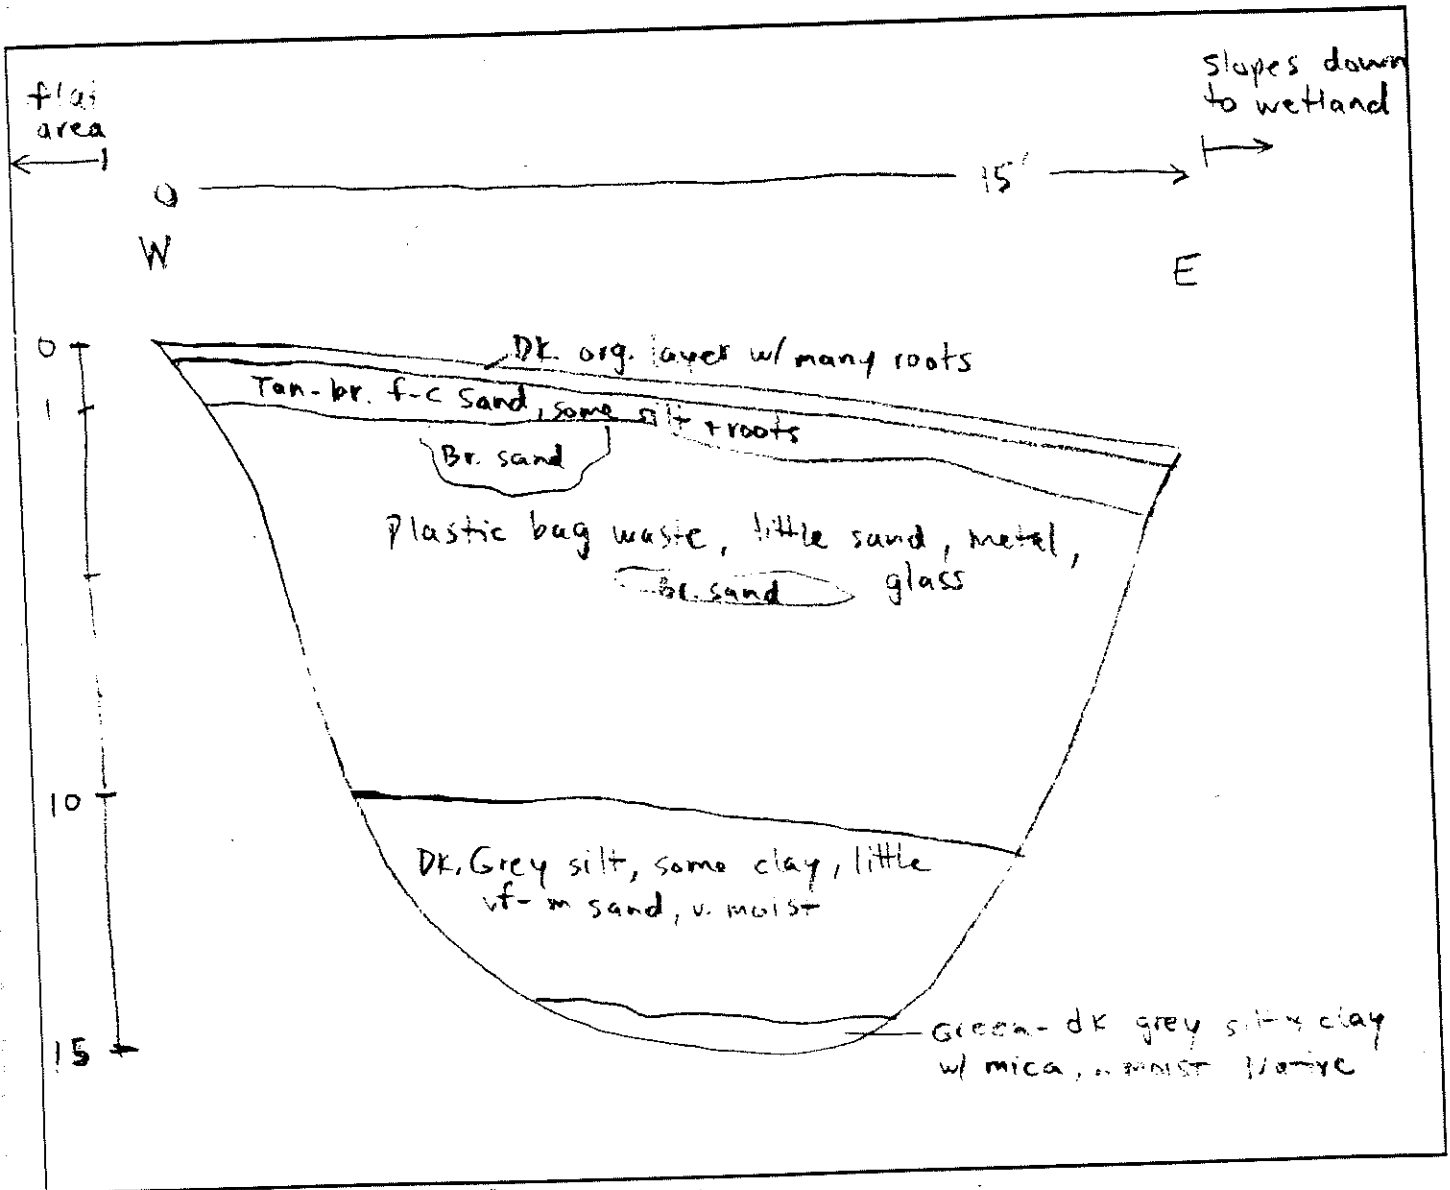 flat
area
slopes down
to wetland
0
15'
W
E
0
Dk. org. layer w/ many roots
1
Tan-br. f-c sand, some silt + roots
Br. sand
Plastic bag waste, little sand, metal,
glass
br. sand
10
Dk. Grey silt, some clay, little
vf-m sand, v. moist
Green-dk grey silty clay
w/ mica, moist Native
15